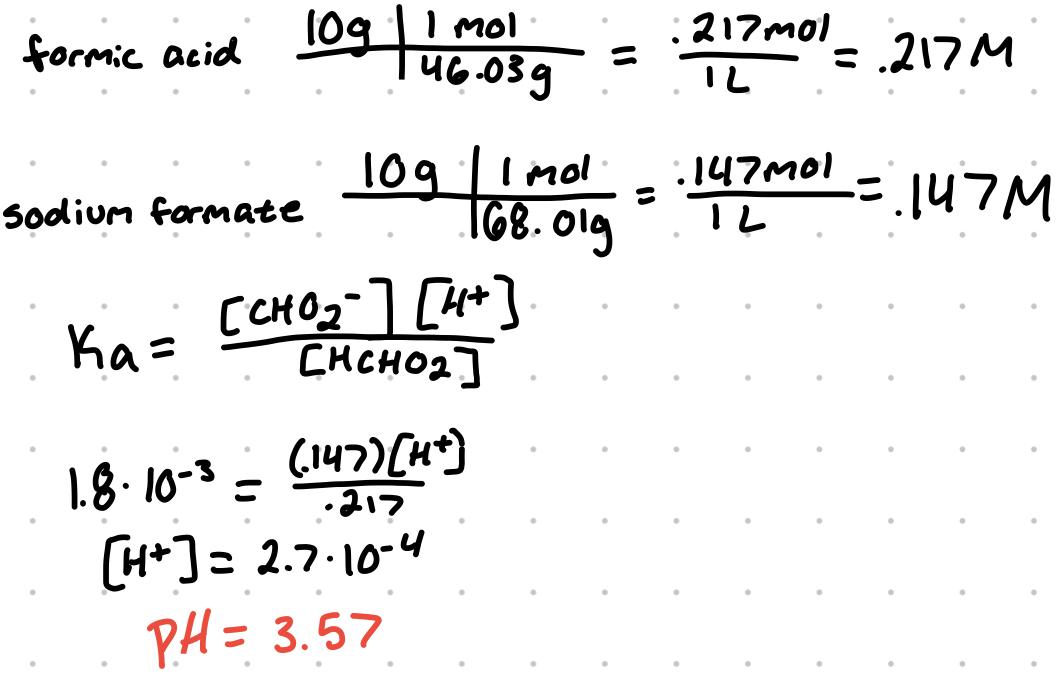 formic acid 10g | 1 mol / 46.03g = .217mol / 1 L = .217M
sodium formate 10g | 1 mol / 68.01g = .147mol / 1 L = .147M
Ka = [CHO₂⁻] [H⁺] / [HCHO₂]
1.8 · 10⁻³ = (.147)[H⁺] / .217
[H⁺] = 2.7 · 10⁻⁴
pH = 3.57